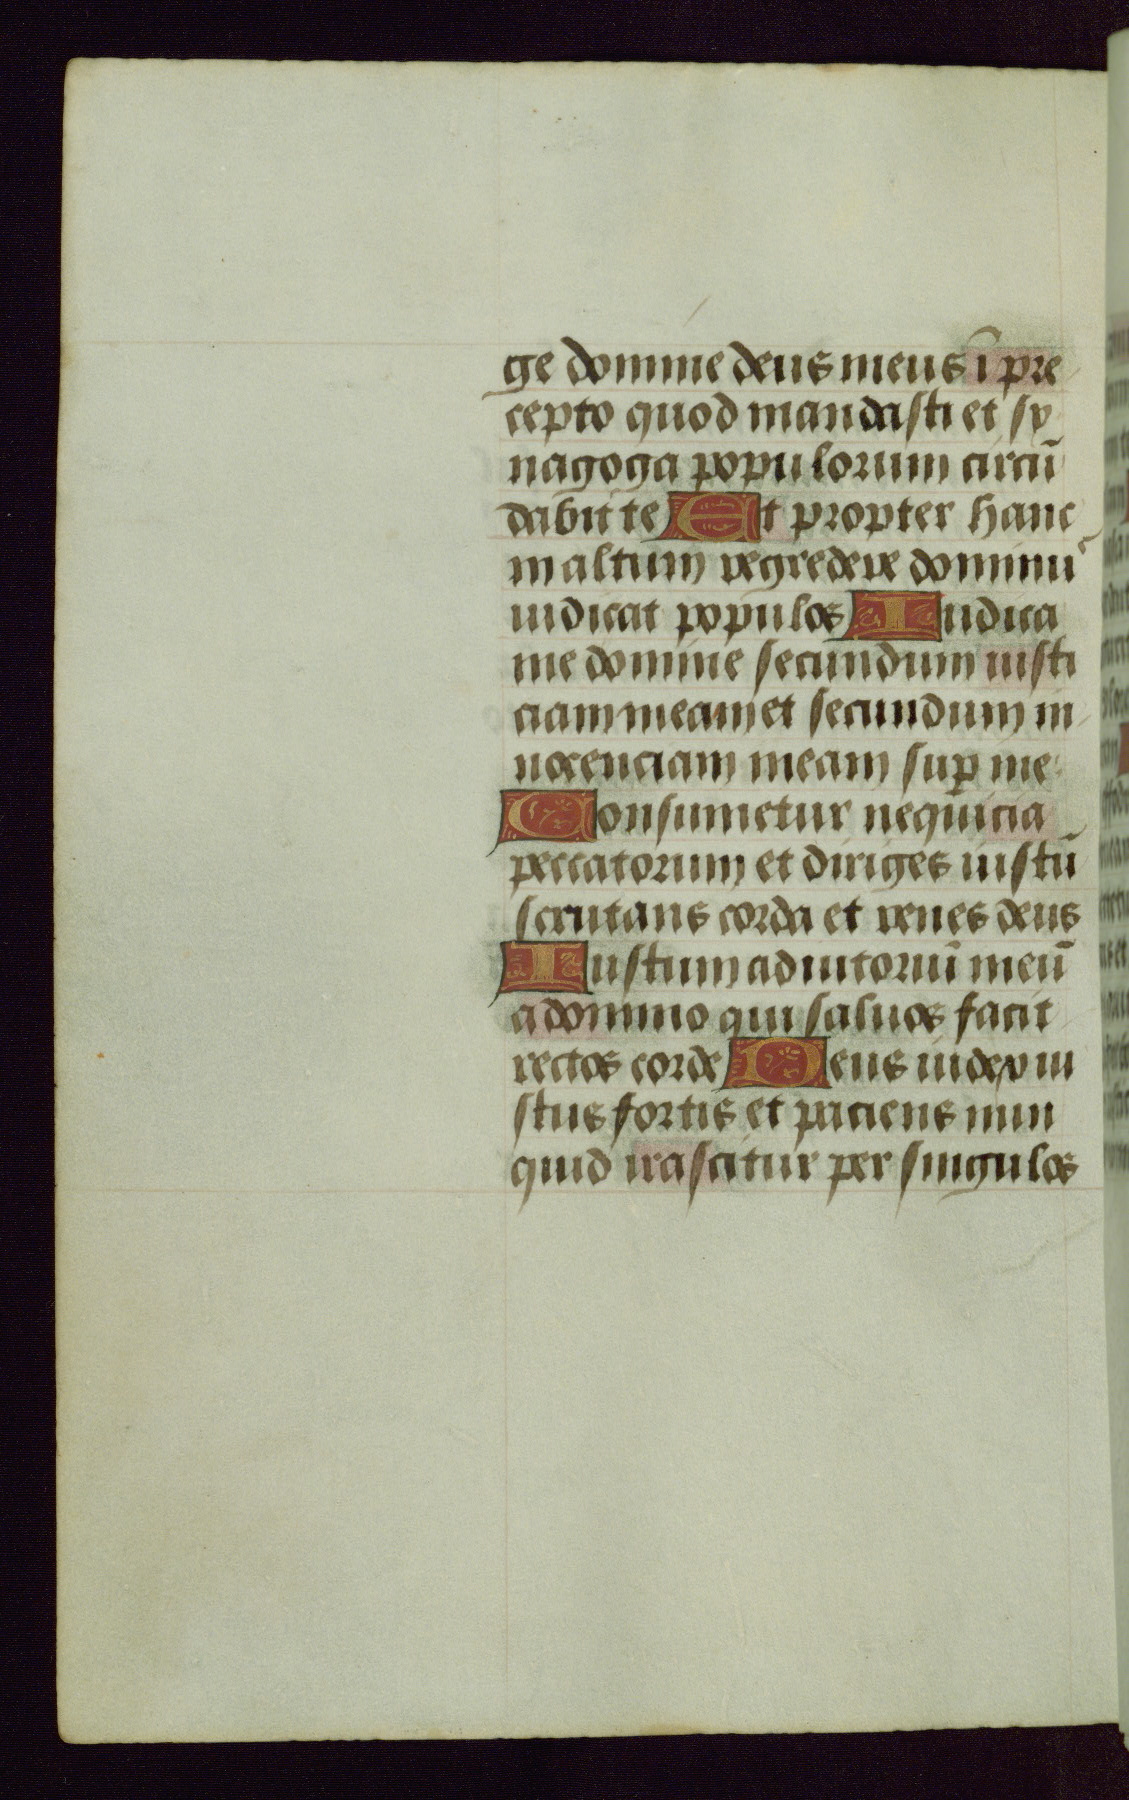 ge domine deus meus ī pre
cepto quod mandasti et sy
nagoga populorum circū
dabit te Et propter hanc
in altum regredere dominuˢ
iudicat populos Iudica
me domine secundum iusti
ciam meam et secundum in
nocenciam meam suꝑ me
Consumetur nequicia
peccatorum et diriges iustū
scrutans corda et renes deus
Iustum adiutoriū meū
a domino qui saluos facit
rectos corde Deus iudex iu
stus fortis et paciens nun
quid irascitur per singulos